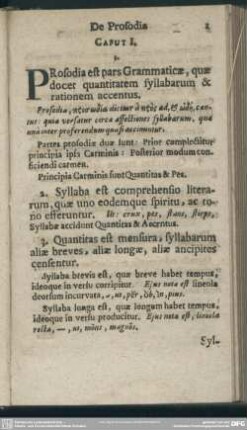 De Prosodia
CAPUT I.
PRosodia est pars Grammaticæ, quæ
docet quantitatem syllabarum &
rationem accentus.
Prosodia, dicitur à ad, & can-
tus: quia versatur circa affectiones syllabarum, quæ
una inter proferendum quasi accinuntur.
Partes prosodiæ duæ sunt: Prior complectitur
principia ipsa Carminis: Posterior modum con-
ficiendi carmen.
Principia Carminis sunt Quantitas & Pes.
2. Syllaba est comprehensio litera-
rum, quæ uno eodemque spiritu, ac to-
no efferuntur. Ut: crux, pes, stans, stirps,
Syllabæ accidunt Quantitas & Accentus.
3. Quantitas est mensura, syllabarum
aliæ breves, aliæ longæ, aliæ ancipites
censentur.
Syllaba brevis est, quæ breve habet tempus,
ideoque in versu corripitur. Ejus nota est lineola
deorsum incurvata, pius.
Syllaba longa est, quæ longum habet tempus,
ideoque in versu producitur. Ejus nota est, lineola
recta, —, ut, môns, magnôs.
Syl-